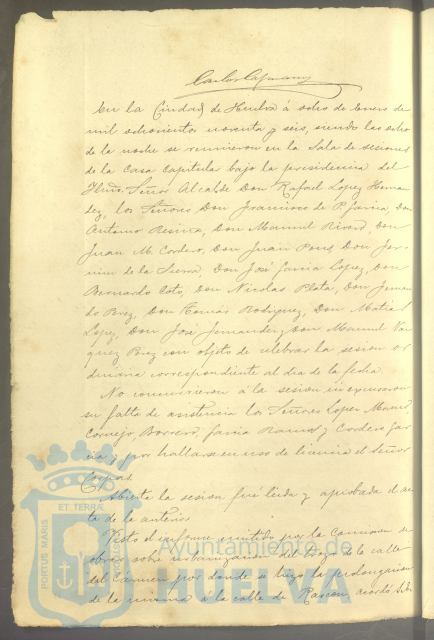 Carlos Cazmany
En la Ciudad de Huelva á ocho de Enero de
mil ochocientos noventa y seis, siendo las ocho
de la noche se reunieron en la Sala de sesiones
de la Casa Capitular bajo la presidencia del
Iltmo. Señor Alcalde Don Rafael Lopez Hernan
dez, los Señores Don Francisco de P. Garcia, Don
Antonio Resina, Don Manuel Rivero, Don
Juan M. Cordero, Don Juan Pons, Don
de la Sierra, Don José Garcia Lopez, Don
Bernardo Coto, Don Nicolas Plata, Don
do Don Tomás Rodriguez, Don Matias
Lopez, Don José Fernandez, Don Manuel Vaz
quez con objeto de celebrar la sesion or
dinaria correspondiente al dia de la fecha.
No concurrieron á la sesion
su falta de asistencia los Señores Lopez
Cornejo, Borrero, Garcia Ramos y Cordero Gar
cia y por hallarse en uso de licencia el Señor
Abierta la sesion fué leida y aprobada el ac
ta de la anterior.
Visto el informe emitido por la Comision de
obras sobre urbanizacion del trozo de la calle
del Carmen por donde se hizo la prolongacion
de la misma á la calle de Rascon, acordó el
PORTUS MARIS ET TERRÆ
Ayuntamiento de
HUELVA